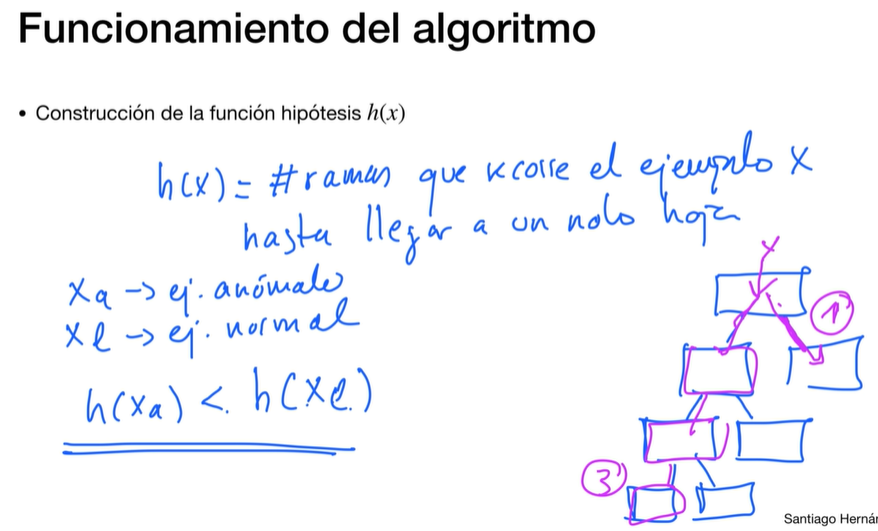 Funcionamiento del algoritmo
• Construcción de la función hipótesis h(x)
h(x) = # ramas que recorre el ejemplo x
hasta llegar a un nodo hoja
xa -> ej. anómalo
xl -> ej. normal
h(xa) < h(xl)
x
1
3
Santiago Hernár